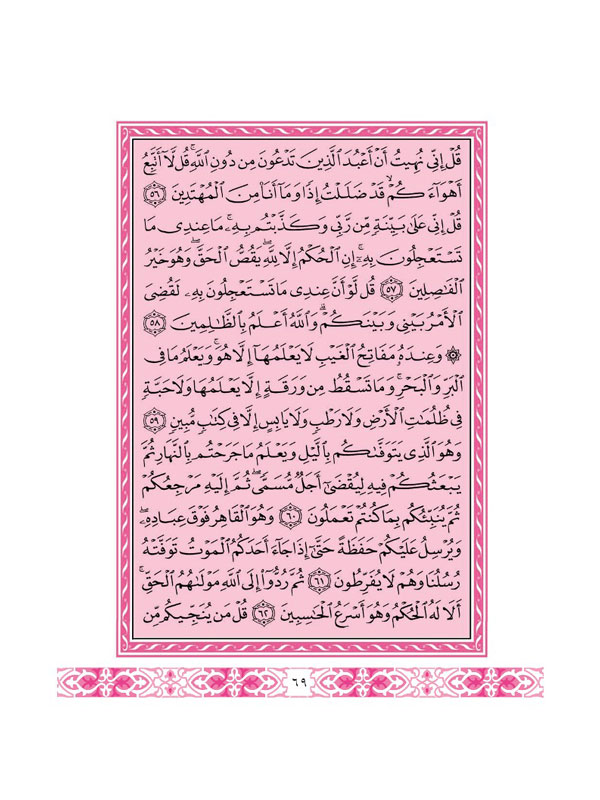 قُلْ إِنِّي نُهِيتُ أَنْ أَعْبُدَ ٱلَّذِينَ تَدْعُونَ مِن دُونِ ٱللَّهِ ۚ قُل لَّآ أَتَّبِعُ
أَهْوَآءَكُمْ ۙ قَدْ ضَلَلْتُ إِذًا وَمَآ أَنَا۠ مِنَ ٱلْمُهْتَدِينَ ٥٦
قُلْ إِنِّي عَلَىٰ بَيِّنَةٍ مِّن رَّبِّي وَكَذَّبْتُم بِهِۦ ۚ مَا عِندِي مَا
تَسْتَعْجِلُونَ بِهِۦٓ ۚ إِنِ ٱلْحُكْمُ إِلَّا لِلَّهِ ۖ يَقُصُّ ٱلْحَقَّ ۖ وَهُوَ خَيْرُ
ٱلْفَٰصِلِينَ ٥٧ قُل لَّوْ أَنَّ عِندِي مَا تَسْتَعْجِلُونَ بِهِۦ لَقُضِيَ
ٱلْأَمْرُ بَيْنِي وَبَيْنَكُمْ ۗ وَٱللَّهُ أَعْلَمُ بِٱلظَّٰلِمِينَ ٥٨
۞ وَعِندَهُۥ مَفَاتِحُ ٱلْغَيْبِ لَا يَعْلَمُهَآ إِلَّا هُوَ ۚ وَيَعْلَمُ مَا فِي
ٱلْبَرِّ وَٱلْبَحْرِ ۚ وَمَا تَسْقُطُ مِن وَرَقَةٍ إِلَّا يَعْلَمُهَا وَلَا حَبَّةٍ
فِي ظُلُمَٰتِ ٱلْأَرْضِ وَلَا رَطْبٍ وَلَا يَابِسٍ إِلَّا فِي كِتَٰبٍ مُّبِينٍ ٥٩
وَهُوَ ٱلَّذِي يَتَوَفَّىٰكُم بِٱلَّيْلِ وَيَعْلَمُ مَا جَرَحْتُم بِٱلنَّهَارِ ثُمَّ
يَبْعَثُكُمْ فِيهِ لِيُقْضَىٰٓ أَجَلٌ مُّسَمًّى ۖ ثُمَّ إِلَيْهِ مَرْجِعُكُمْ
ثُمَّ يُنَبِّئُكُم بِمَا كُنتُمْ تَعْمَلُونَ ٦٠ وَهُوَ ٱلْقَاهِرُ فَوْقَ عِبَادِهِۦ ۖ
وَيُرْسِلُ عَلَيْكُمْ حَفَظَةً حَتَّىٰٓ إِذَا جَآءَ أَحَدَكُمُ ٱلْمَوْتُ تَوَفَّتْهُ
رُسُلُنَا وَهُمْ لَا يُفَرِّطُونَ ٦١ ثُمَّ رُدُّوٓا۟ إِلَى ٱللَّهِ مَوْلَىٰهُمُ ٱلْحَقِّ ۚ
أَلَا لَهُ ٱلْحُكْمُ وَهُوَ أَسْرَعُ ٱلْحَٰسِبِينَ ٦٢ قُلْ مَن يُنَجِّيكُم مِّن
٦٩